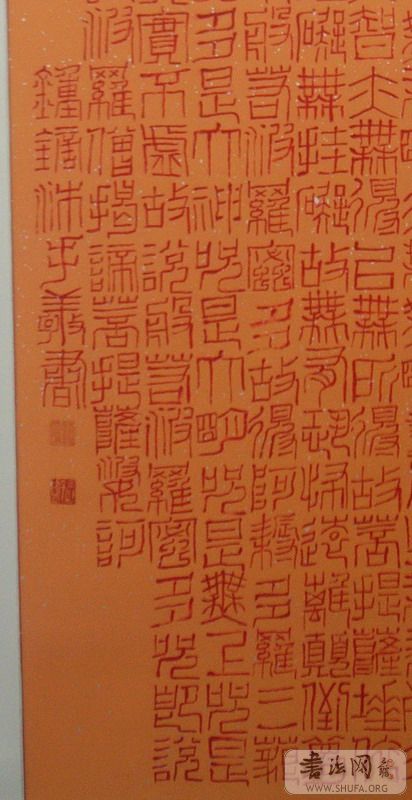 智亦無得以無所得故菩提薩埵
礙無挂礙故無有恐怖遠離顛倒
般若波羅蜜多故得阿耨多羅三藐
多是大神咒是大明咒是無上咒是
實不虛故說般若波羅蜜多咒即說
波羅僧揭諦菩提薩婆訶
鐘鏑沐手敬書
書法网
WWW.SHUFA.ORG